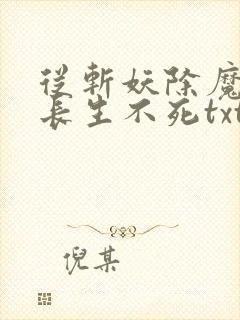 從斬妖除魔
長生不死txt
倪某